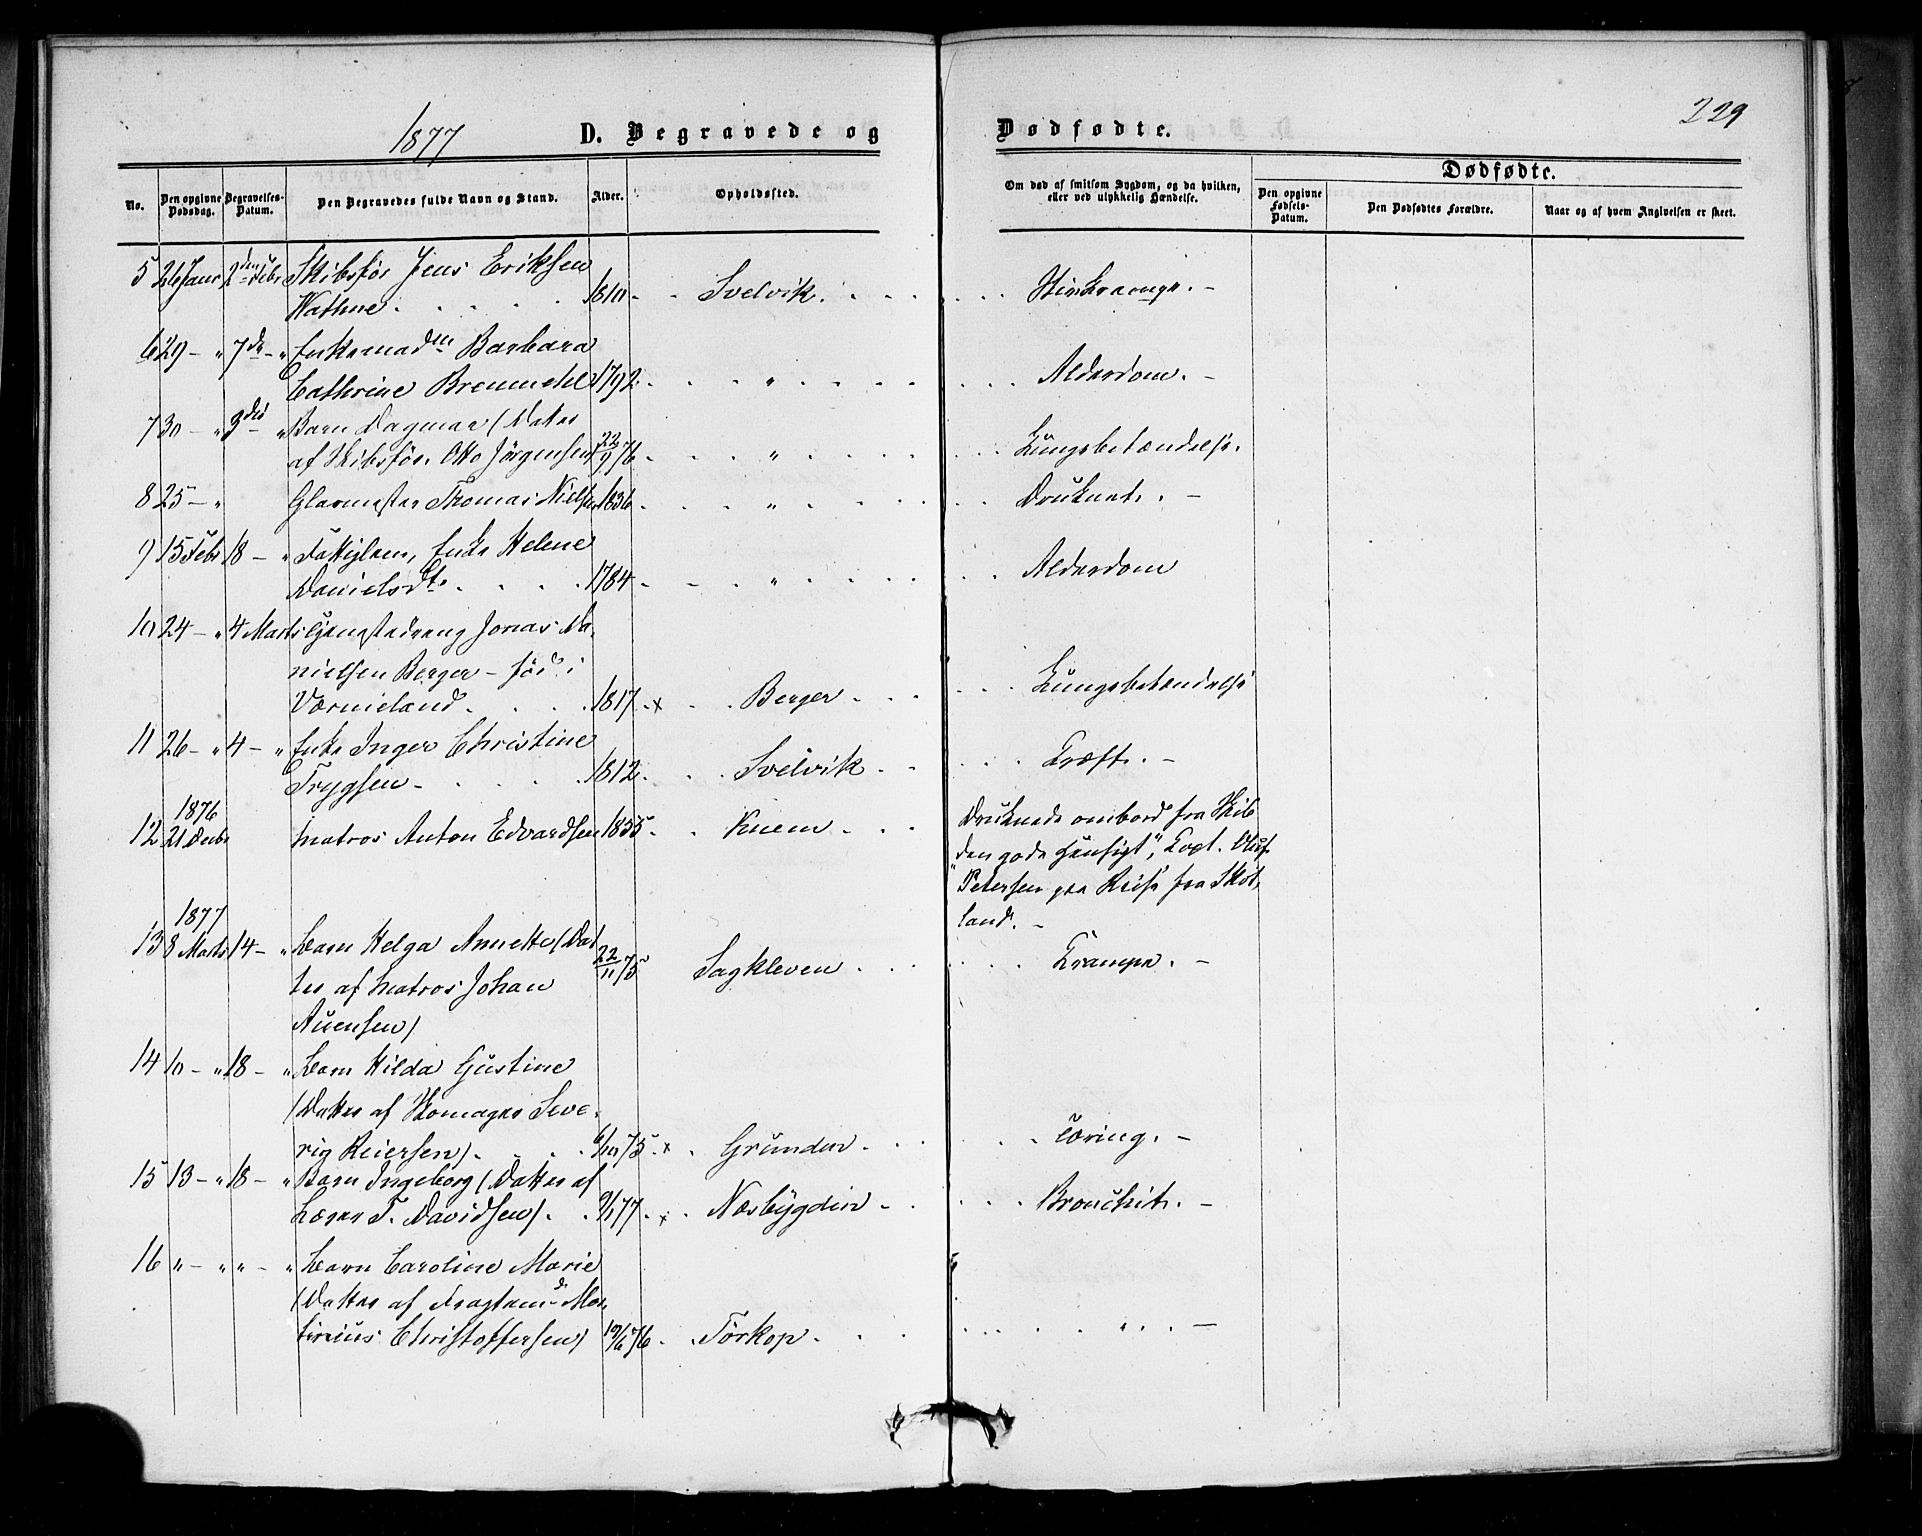 1877 D. Begravede og Dødfødte. 229
No. Den opgivne Dødsdag. Begravelses-Datum. Den Begravedes fulde Navn og Stand. Alder. Opholdssted. Om død af smitsom Sygdom, og da hvilken, eller ved ulykkelig Hændelse. Dødfødte.
Den opgivne Fødsels-Datum. Den Dødfødtes Forældre. Naar og af hvem Angivelsen er skeet.
5 26 Janr 2den Febr Skibsfør Jens Eriksen
Wathne. 1810 Svelvik.
6 29 - " 7de - " Enkemadm Barbara
Cathrine Bremmehl 1792. " Alderdom. -
7 30 - " 3die " Barn Dagmar (Datter
af Skibsfør. Otto Jörgensen) 22/9 76. " Lungebetændelse.
8 25 - " Glarmester Thomas Nielsen 1836. " Druknet. -
9 15 Febr 18 - " Fattiglem, Enke Helene
Danielsdtr. 1784 - " Alderdom
10 24 - " 4 Marts Tjenstedreng Jonas Da-
nielsen Berger - född i
Værmeland. 1817. x Berger Lungebetændelse
11 26 - " 4 - " Enke Inger Christine
Trygsen - 1812. Svelvik Kræft. -
12 1876
21 Decbr Matros Anton Edvardsen 1855. Knem Druknede ombord fra Skib
"den gode Hensigt", Capt. Oluf
Petersen paa Reise fra Skot-
land. -
1877
13 8 Marts 14 - " Barn Helga Annette (Dat
ter af Matros Johan 22/11 75 Sagkleven Krampe. -
Auensen)
14 10 - " 18 - " Barn Hilda Gustine
(Datter af Skomager Seve-
rig Reiersen). 6/10 75. x Grunden. Tæring. -
15 13 - " 18 - " Barn Ingeborg (Datter af
Læger T. Davidsen). 9/1 77. x Næsbygden Bronchit. -
16 " - " " - " Barn Caroline Marie
(Datter af Fragtemd Mar-
tinius Christoffersen) 10/6 76. Tørkop. " -